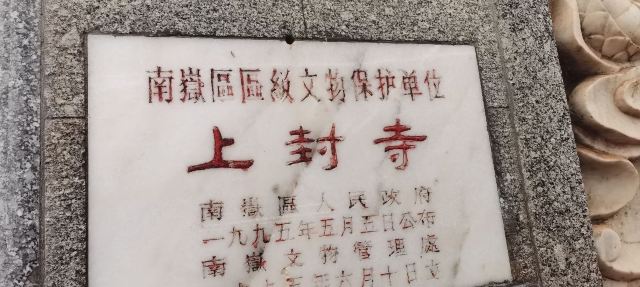 南嶽區區級文物保护单位
上封寺
南嶽區人民政府
一九九五年五月五日公布
南嶽文物管理處
九五年六月十日立